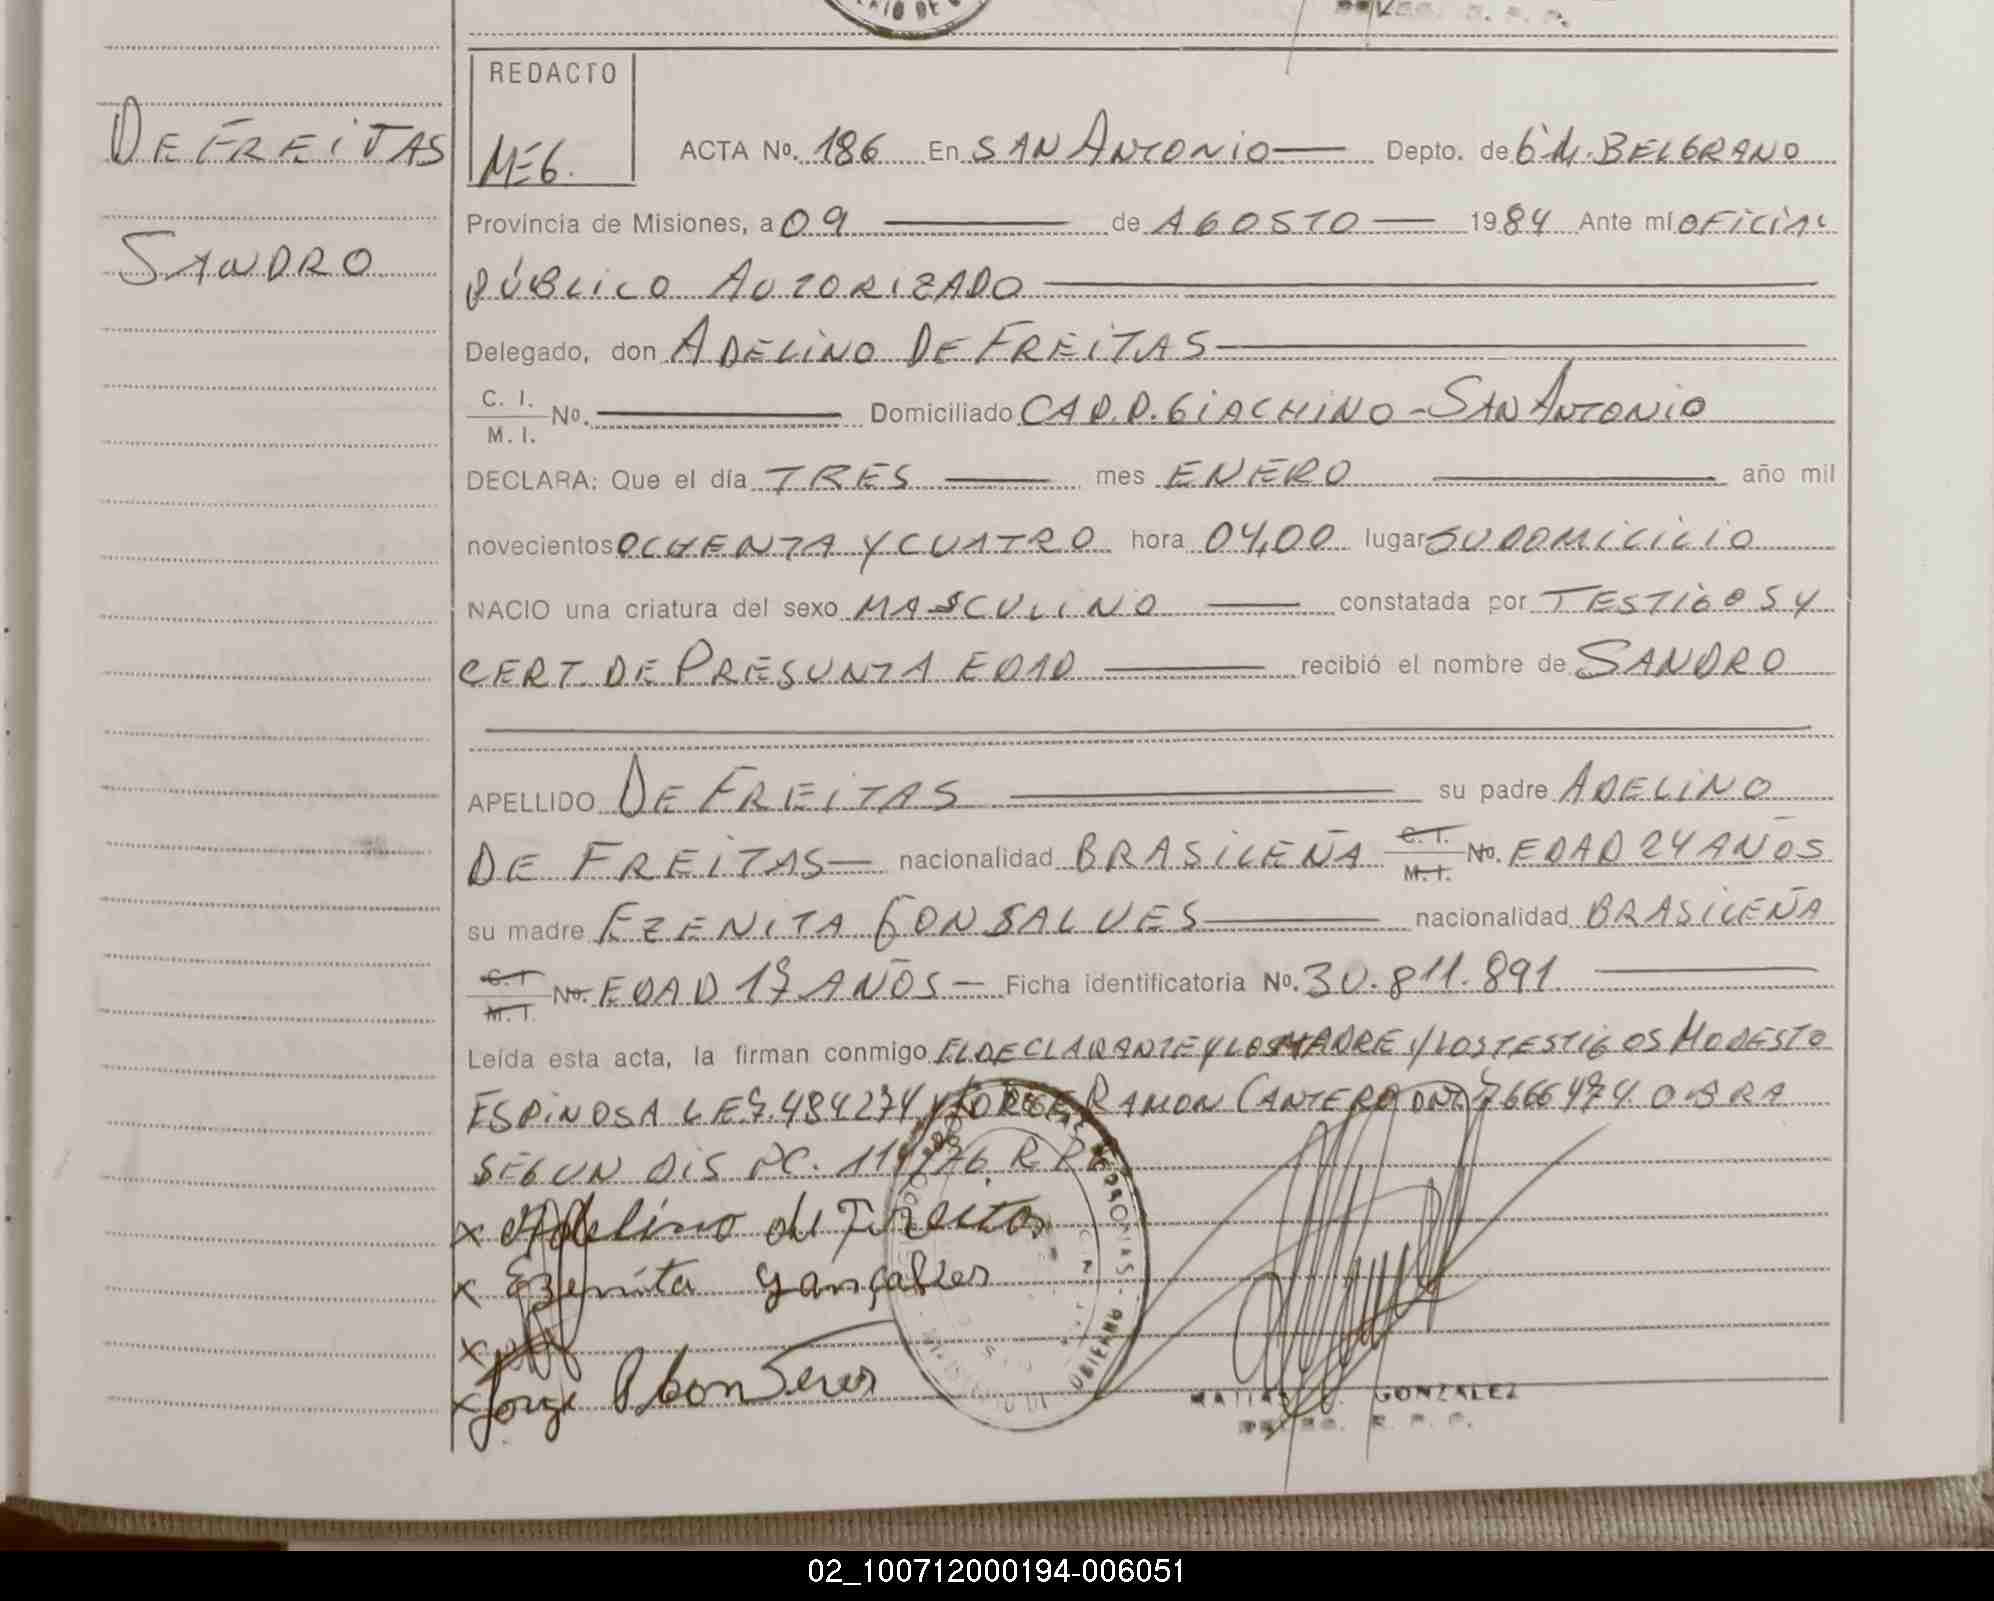 DE FREITAS
SANDRO
REDACTO
MEG.
ACTA No. 186 En SAN ANTONIO Depto. de G. M. BELGRANO
Provincia de Misiones, a 09 de AGOSTO 1984 Ante mí OFICIAL
PÚBLICO AUTORIZADO
Delegado, don ADELINO DE FREITAS
C. I.
M. I. No. Domiciliado CAD.D. GIACHINO - SAN ANTONIO
DECLARA: Que el día TRES mes ENERO año mil
novecientos OCHENTA Y CUATRO hora 04,00 lugar SU DOMICILIO
NACIO una criatura del sexo MASCULINO constatada por TESTIGOS Y
CERT. DE PRESUNTA EDAD recibió el nombre de SANDRO
APELLIDO DE FREITAS su padre ADELINO
DE FREITAS nacionalidad BRASILEÑA C. I. M. I. No. EDAD 24 AÑOS
su madre EZENITA GONSALVES nacionalidad BRASILEÑA
C. I. M. I. No. EDAD 17 AÑOS Ficha identificatoria No. 30.811.891
Leída esta acta, la firman conmigo EL DECLARANTE Y LA MADRE Y LOS TESTIGOS MODESTO
ESPINOSA L E 7.484274 Y JORGE RAMON CANTERO DNI 7666474. OBRA
SEGUN DIS PC. R P
x Adelino de Freitas
x Ezenita Gonçalves
x
x Jorge
GONZALEZ
R. P. P.
02_100712000194-006051